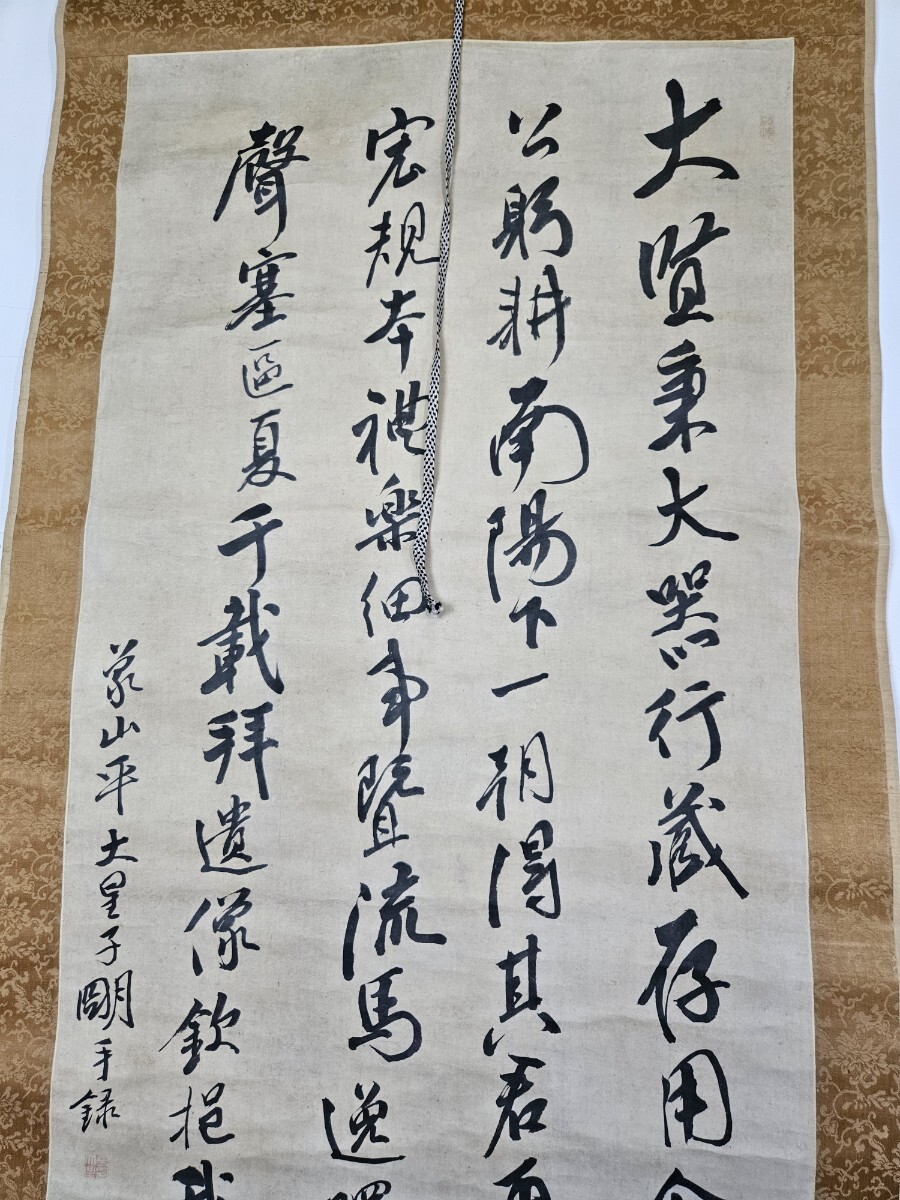 大賢秉大器行藏存用舍
公躬耕南陽下一朝得其君
宏規本禮樂細事暨流馬逸
聲塞區夏千載拜遺像欽挹
蒙山平大星子明手錄